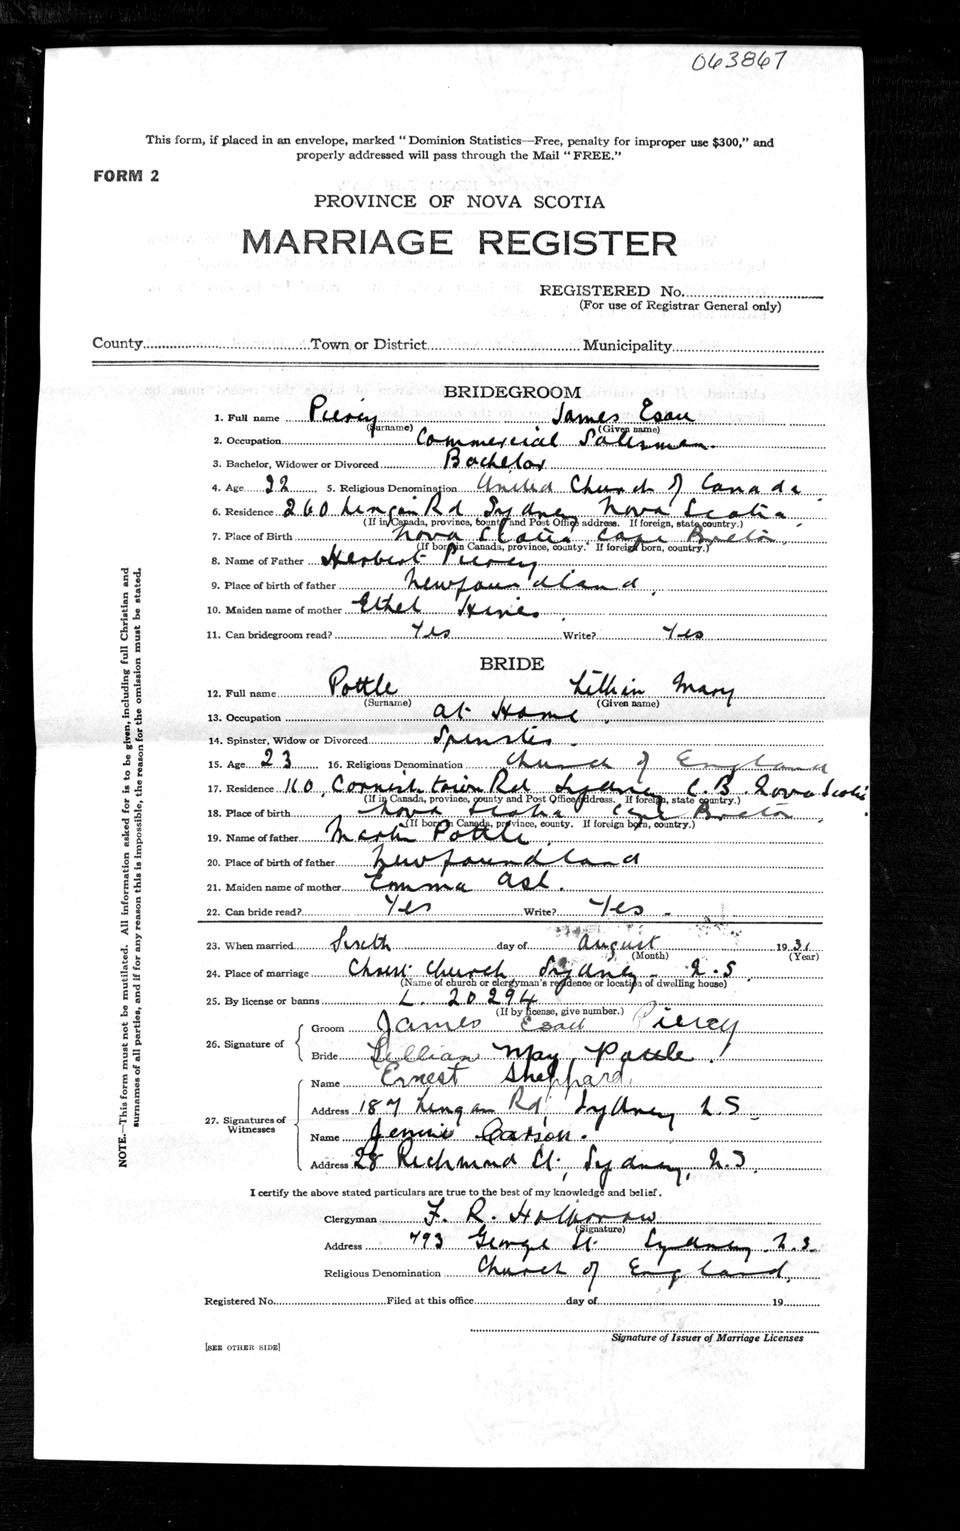 063867
This form, if placed in an envelope, marked "Dominion Statistics—Free, penalty for improper use $300," and
properly addressed will pass through the Mail "FREE."
FORM 2
PROVINCE OF NOVA SCOTIA
MARRIAGE REGISTER
REGISTERED No.
(For use of Registrar General only)
County Town or District Municipality
BRIDEGROOM
1. Full name Piercy James Esau
(Surname) (Given name)
2. Occupation Commercial Salesman.
3. Bachelor, Widower or Divorced Bachelor
4. Age 22 5. Religious Denomination United Church of Canada
6. Residence 260 Lingan Rd Sydney Nova Scotia
(If in Canada, province, county and Post Office address. If foreign, state country.)
7. Place of Birth Nova Scotia Cape Breton
(If born in Canada, province, county. If foreign born, country.)
8. Name of Father Herbert Piercy
9. Place of birth of father Newfoundland
10. Maiden name of mother Ethel Hines
11. Can bridegroom read? Yes Write? Yes
BRIDE
12. Full name Pottle Lillian Mary
(Surname) (Given name)
13. Occupation at Home
14. Spinster, Widow or Divorced Spinster.
15. Age 23 16. Religious Denomination Church of England
17. Residence 110 Cornishtown Rd Sydney C.B. Nova Scotia
(If in Canada, province, county and Post Office address. If foreign, state country.)
18. Place of birth Nova Scotia Cape Breton
(If born in Canada, province, county. If foreign born, country.)
19. Name of father Martin Pottle
20. Place of birth of father Newfoundland
21. Maiden name of mother Emma Ash.
22. Can bride read? Yes Write? Yes
23. When married Sixth day of August 1931
(Month) (Year)
24. Place of marriage Christ Church Sydney N.S.
(Name of church or clergyman's residence or location of dwelling house)
25. By license or banns L. 20294
(If by license, give number.)
26. Signature of
Groom James Esau Piercy
Bride Lillian May Pottle
27. Signatures of Witnesses
Name Ernest Sheppard
Address 187 Lingan Rd, Sydney N.S.
Name Jennie Carson.
Address 28 Richmond St, Sydney, N.S.
I certify the above stated particulars are true to the best of my knowledge and belief.
Clergyman F. R. Holborow
(Signature)
Address 793 George St Sydney N.S.
Religious Denomination Church of England
Registered No. Filed at this office day of 19
Signature of Issuer of Marriage Licenses
[SEE OTHER SIDE]
NOTE.—This form must not be mutilated. All information asked for is to be given, including full Christian and
surnames of all parties, and if for any reason this is impossible, the reason for the omission must be stated.